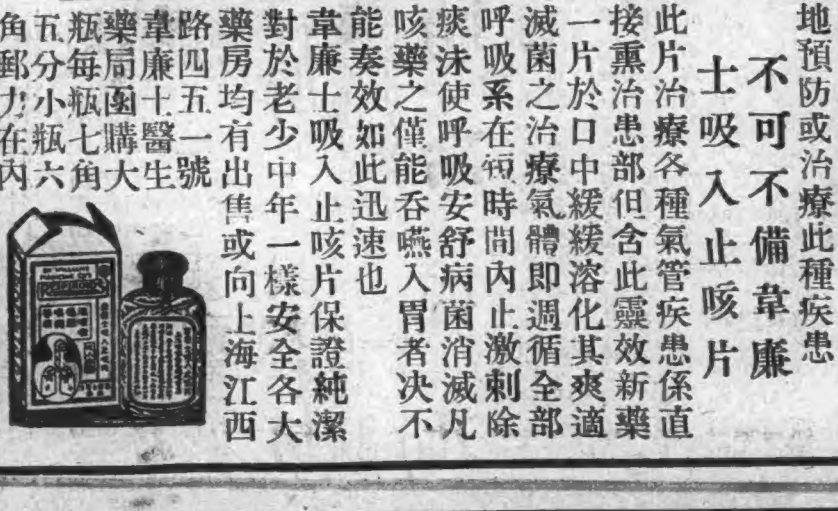 地預防或治療此種疾患
不可不備韋廉
士吸入止咳片
此片治療各種氣管疾患係直
接熏治患部但含此靈效新藥
一片於口中緩緩溶化其爽適
滅菌之治療氣體即週循全部
呼吸系在短時間內止激刺除
痰沫使呼吸安舒病菌消滅凡
咳藥之僅能吞嚥入胃者决不
能奏效如此迅速也
韋廉士吸入止咳片保證純潔
對於老少中年一樣安全各大
藥房均有出售或向上海江西
路四五一號
韋廉士醫生
藥局函購大
瓶每瓶七角
五分小瓶六
角郵力在內